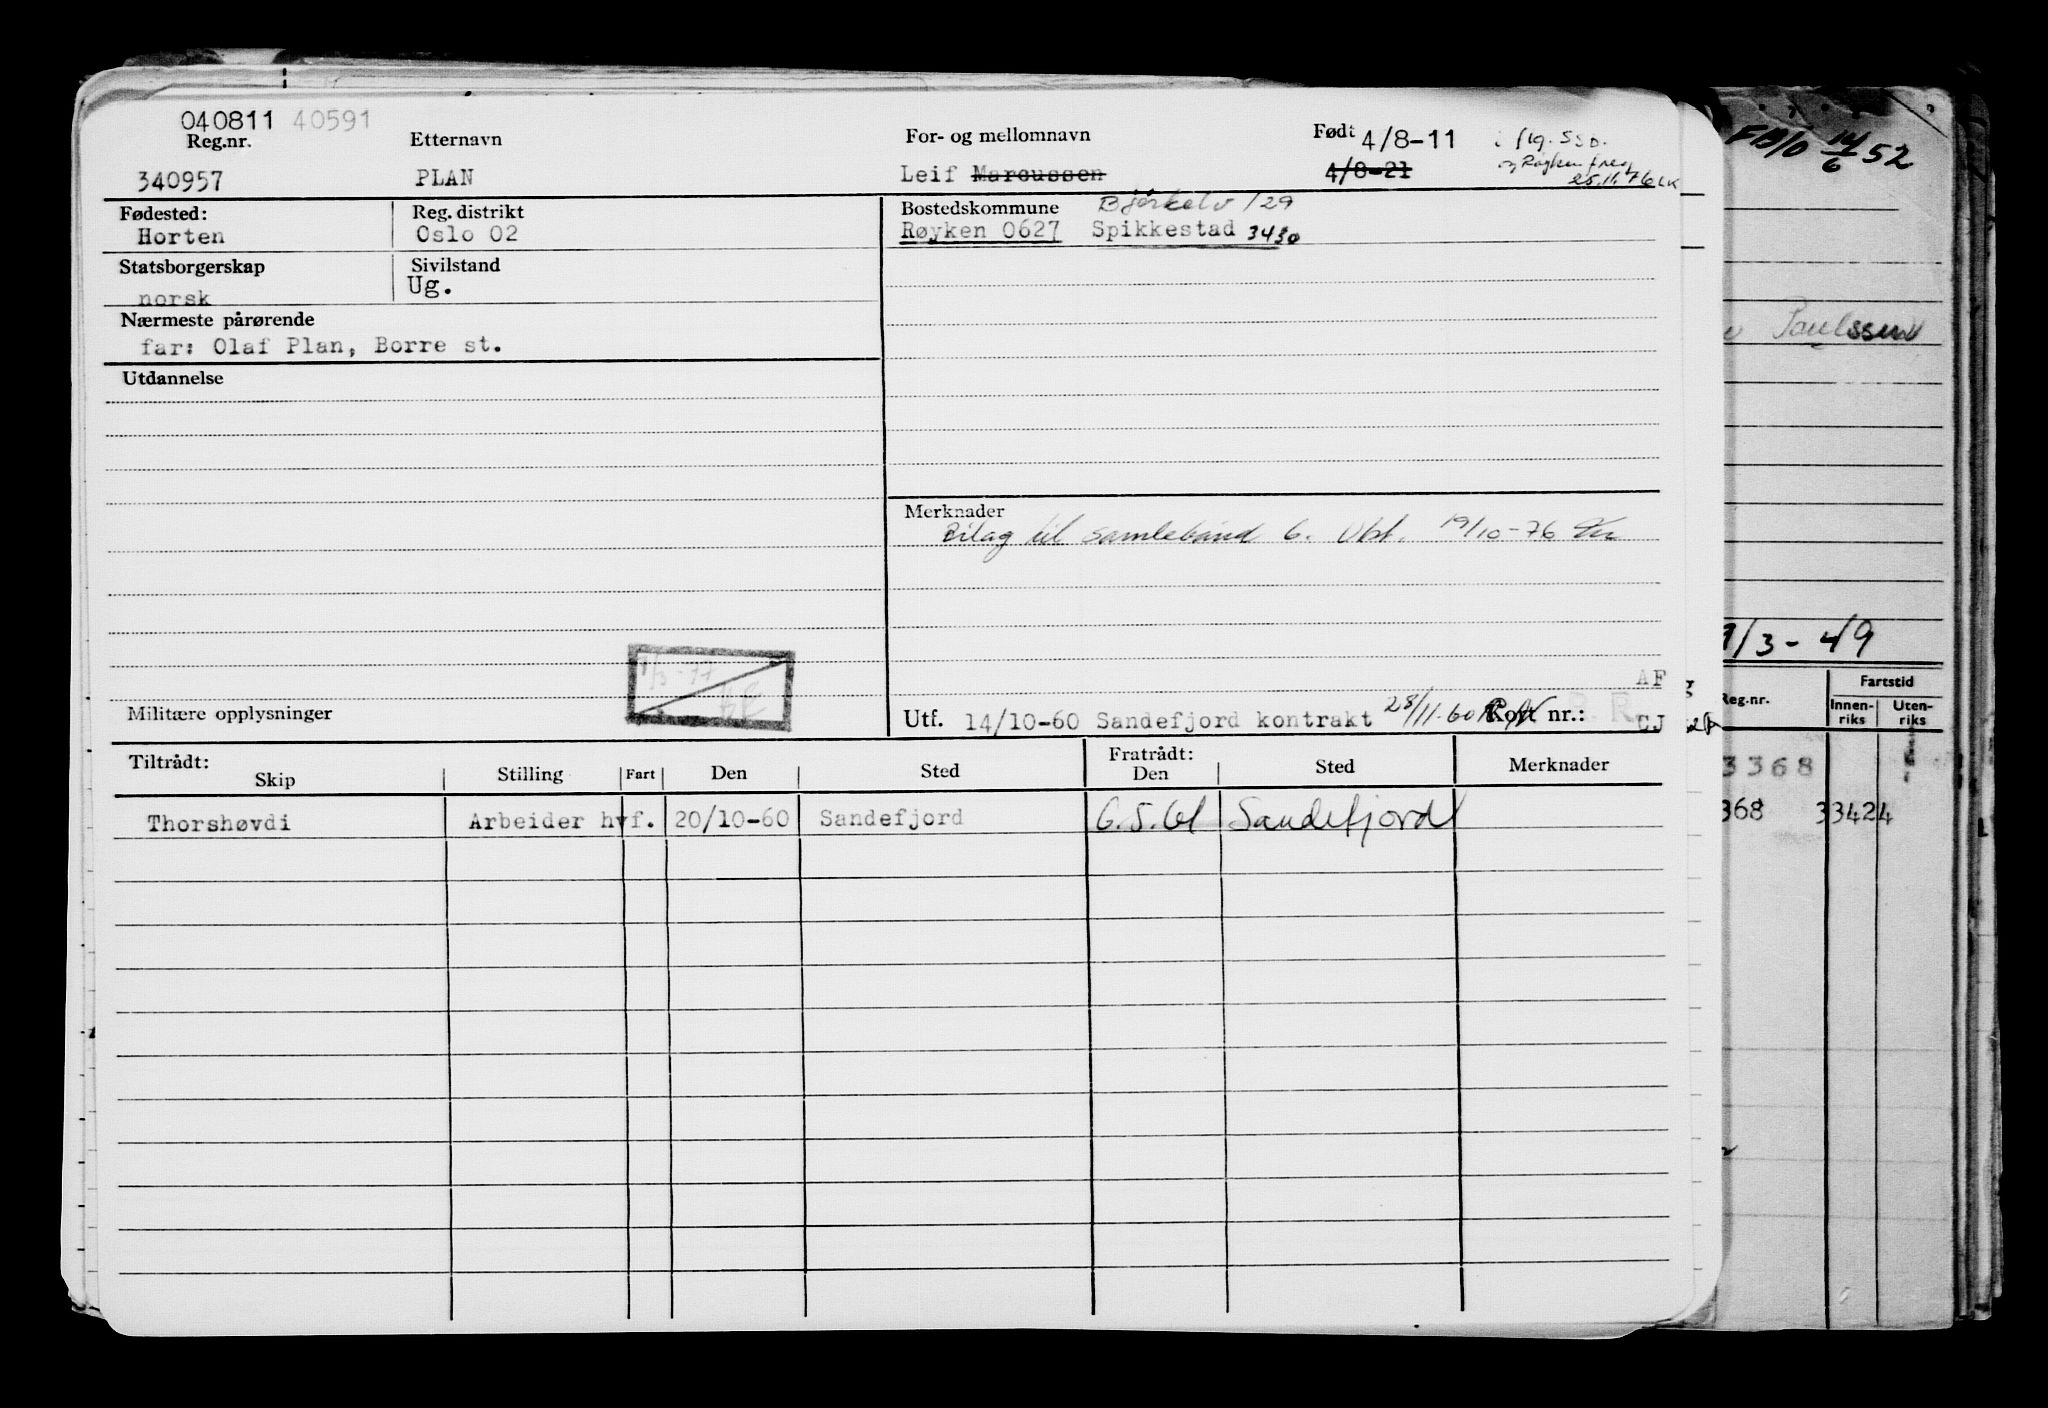 040811 40591
Reg.nr. Etternavn For- og mellomnavn Født 4/8-11
340957 PLAN Leif Marcussen 4/8-21
25.11.76
Fødested: Reg. distrikt Bostedskommune
Horten Oslo 02 Røyken 0627 Spikkestad 3430
Statsborgerskap Sivilstand
norsk Ug.
Nærmeste pårørende
far: Olaf Plan, Borre st.
Utdannelse
Merknader
Bilag til samlebånd 6. Obl. 19/10-76
1/3-77
AF
Militære opplysninger Utf. 14/10-60 Sandefjord kontrakt 28/11-60 Kort nr.: CJ
Tiltrådt: Fratrådt:
Skip Stilling Fart Den Sted Den Sted Merknader
Thorshøvdi Arbeider hvf. 20/10-60 Sandefjord 6.5.61 Sandefjord
14/6 52
Paulssen
1/3-49
Reg.nr. Fartstid
Innen-riks Uten-riks
3368
368 33424